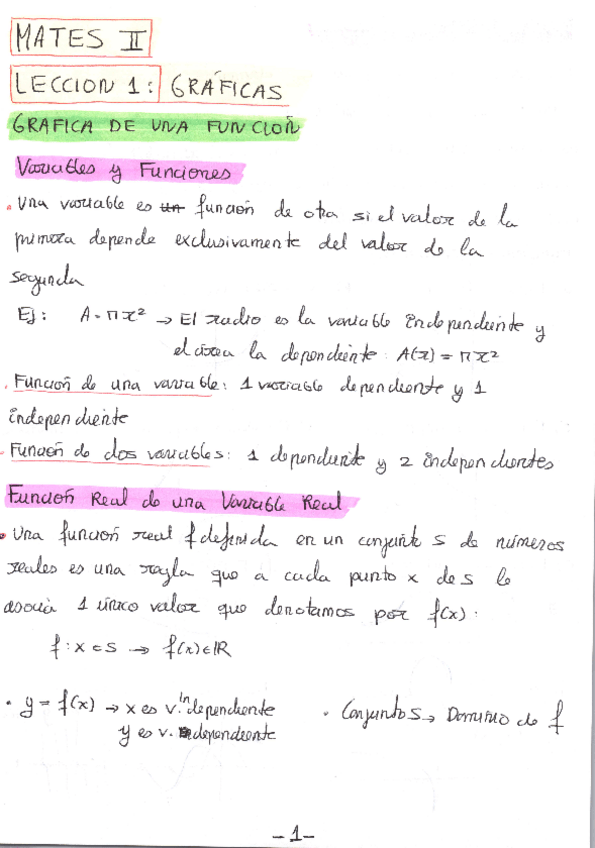 MATES II
LECCION 1: GRÁFICAS
GRAFICA DE UNA FUNCIÓN
Variables y Funciones
. Una variable es un función de otra si el valor de la
primera depende exclusivamente del valor de la
segunda
Ej: A = πr² → El radio es la variable independiente y
el área la dependiente: A(r) = πr²
. Función de una variable: 1 variable dependiente y 1
independiente
. Función de dos variables: 1 dependiente y 2 independientes
Función Real de una Variable Real
• Una función real f definida en un conjunto S de números
reales es una regla que a cada punto x de S le
asocia 1 único valor que denotamos por f(x):
f: x ∈ S → f(x) ∈ ℝ
• y = f(x) → x es v. independiente
y es v. dependiente
• Conjunto S → Dominio de f
-1-